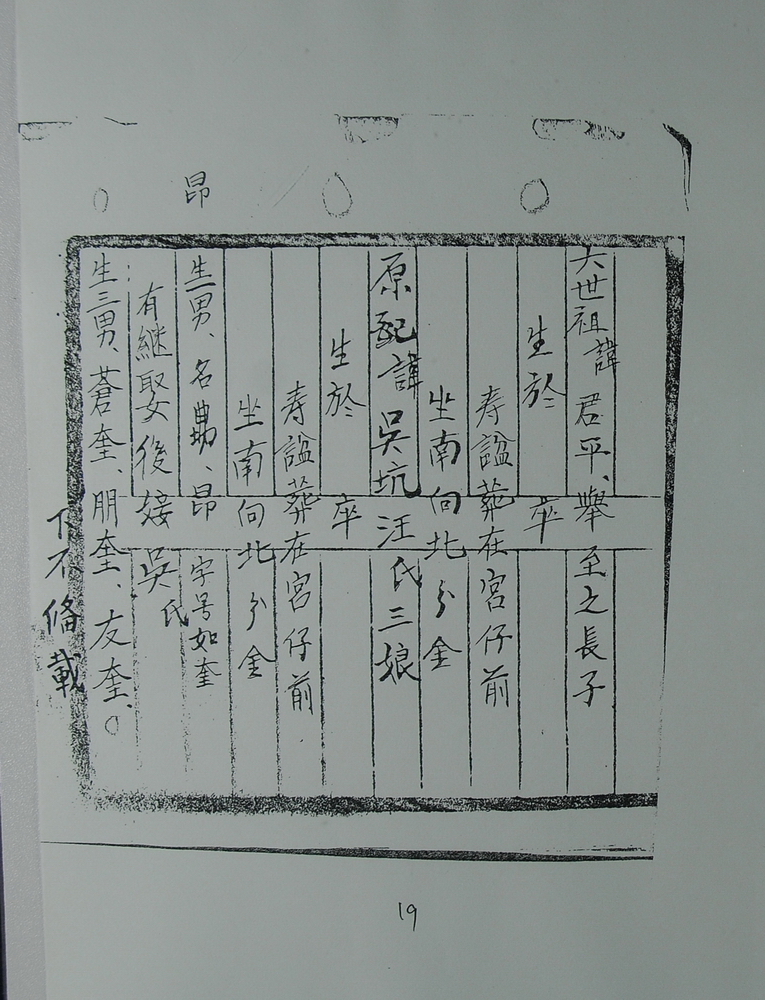 昂
六世祖諱君平、舉至之長子
生於 卒
寿諡葬在宮仔前
坐南向北分金
原配諱吳坑汪氏三娘
生於 卒
寿諡葬在宮仔前
坐南向北分金
生男、名勗、昂 字号如奎
有継娶後婈吳氏
生三男、蒼奎、朋奎、友奎、
下不俻載
19